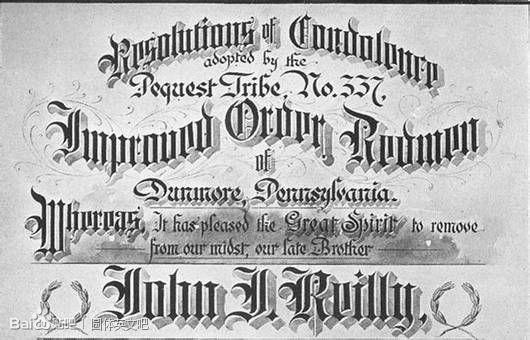 Resolutions of Condolence
adopted by the
Pequest Tribe, No. 337,
Improved Order, Redmen
of
Dunmore, Pennsylvania.
Whereas, It has pleased the Great Spirit to remove
from our midst, our late Brother
John J. Reilly,
Bai 贴吧 | 圆体英文吧